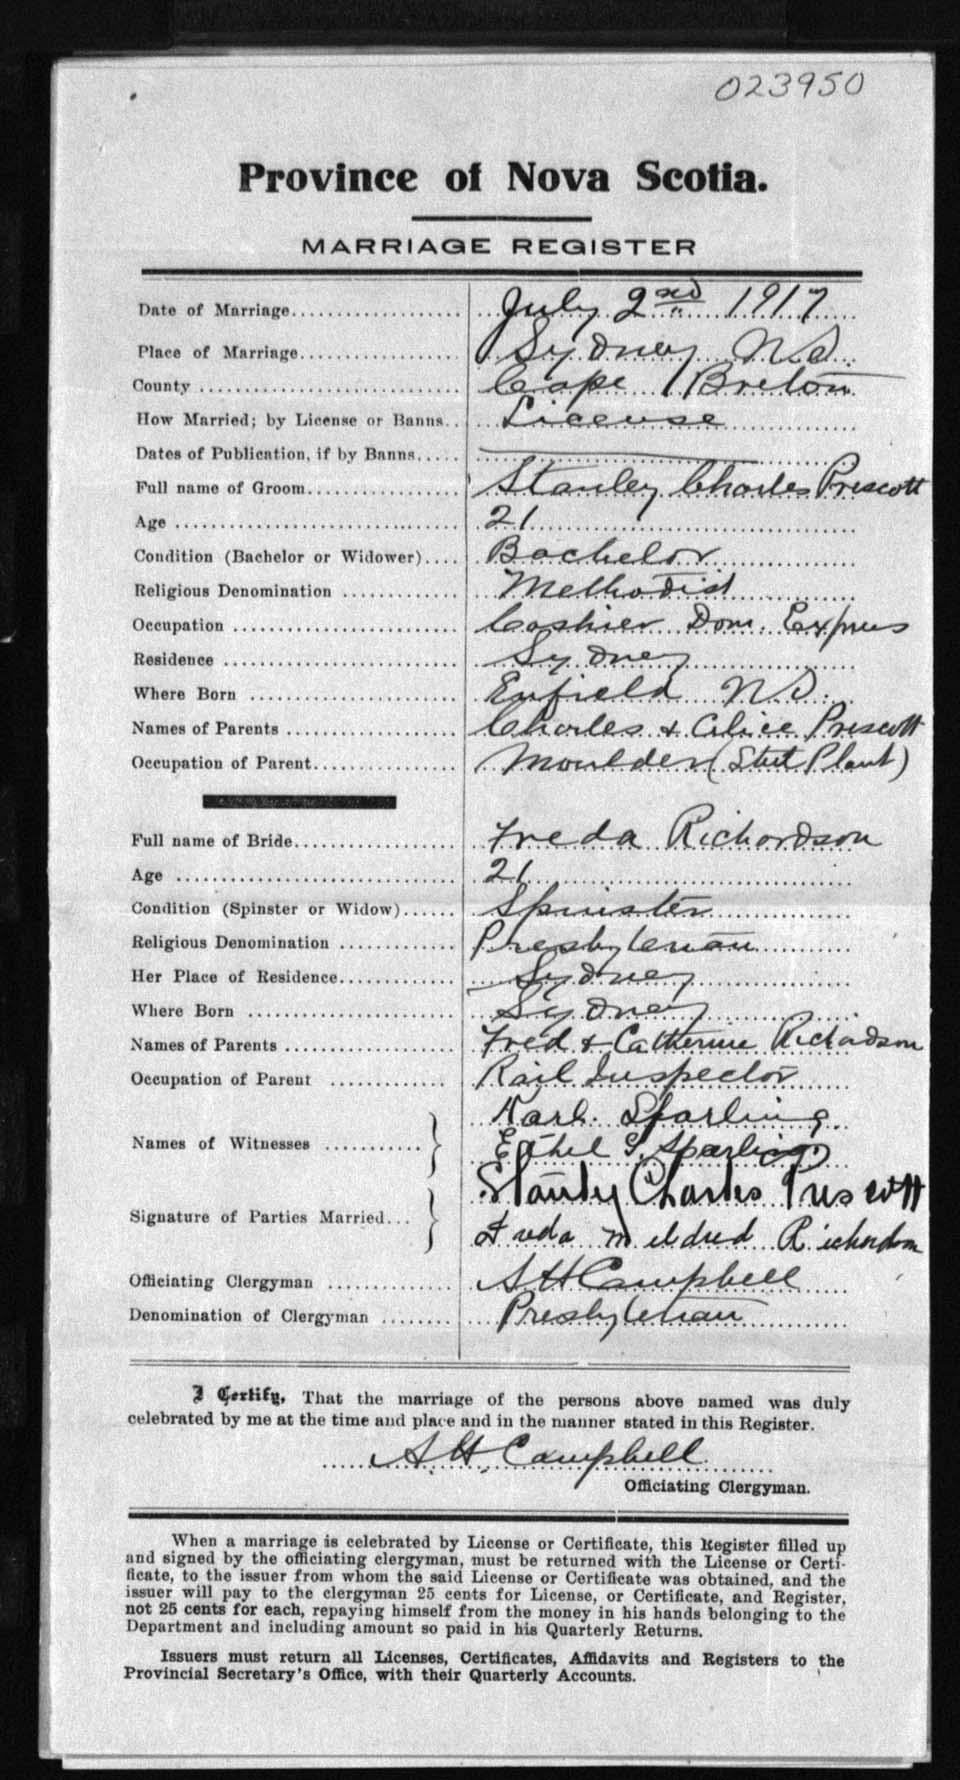 023950
Province of Nova Scotia.
MARRIAGE REGISTER
Date of Marriage.................... July 2nd 1917
Place of Marriage.................. Sydney N S
County .............................. Cape Breton
How Married; by License or Banns.. License
Dates of Publication, if by Banns.....
Full name of Groom.................. Stanley Charles Prescott
Age ................................. 21
Condition (Bachelor or Widower).... Bachelor
Religious Denomination ............ Methodist
Occupation .......................... Cashier Dom. Express
Residence ........................... Sydney
Where Born ........................ Enfield N S.
Names of Parents .................. Charles & Alice Prescott
Occupation of Parent............... Moulder (Steel Plant)
Full name of Bride.................. Freda Richardson
Age ................................. 21
Condition (Spinster or Widow)...... Spinster
Religious Denomination ............ Presbyterian
Her Place of Residence............. Sydney
Where Born ........................ Sydney
Names of Parents .................. Fred & Catherine Richardson
Occupation of Parent ............. Rail Inspector
Names of Witnesses ........... } Karl Sparling.
Ethel G. Sparling
Signature of Parties Married... } Stanley Charles Prescott
Freda Mildred Richardson
Officiating Clergyman ............. A H Campbell
Denomination of Clergyman ........ Presbyterian
I Certify, That the marriage of the persons above named was duly
celebrated by me at the time and place and in the manner stated in this Register.
A. H. Campbell
Officiating Clergyman.
When a marriage is celebrated by License or Certificate, this Register filled up
and signed by the officiating clergyman, must be returned with the License or Certi-
ficate, to the issuer from whom the said License or Certificate was obtained, and the
issuer will pay to the clergyman 25 cents for License, or Certificate, and Register,
not 25 cents for each, repaying himself from the money in his hands belonging to the
Department and including amount so paid in his Quarterly Returns.
Issuers must return all Licenses, Certificates, Affidavits and Registers to the
Provincial Secretary's Office, with their Quarterly Accounts.